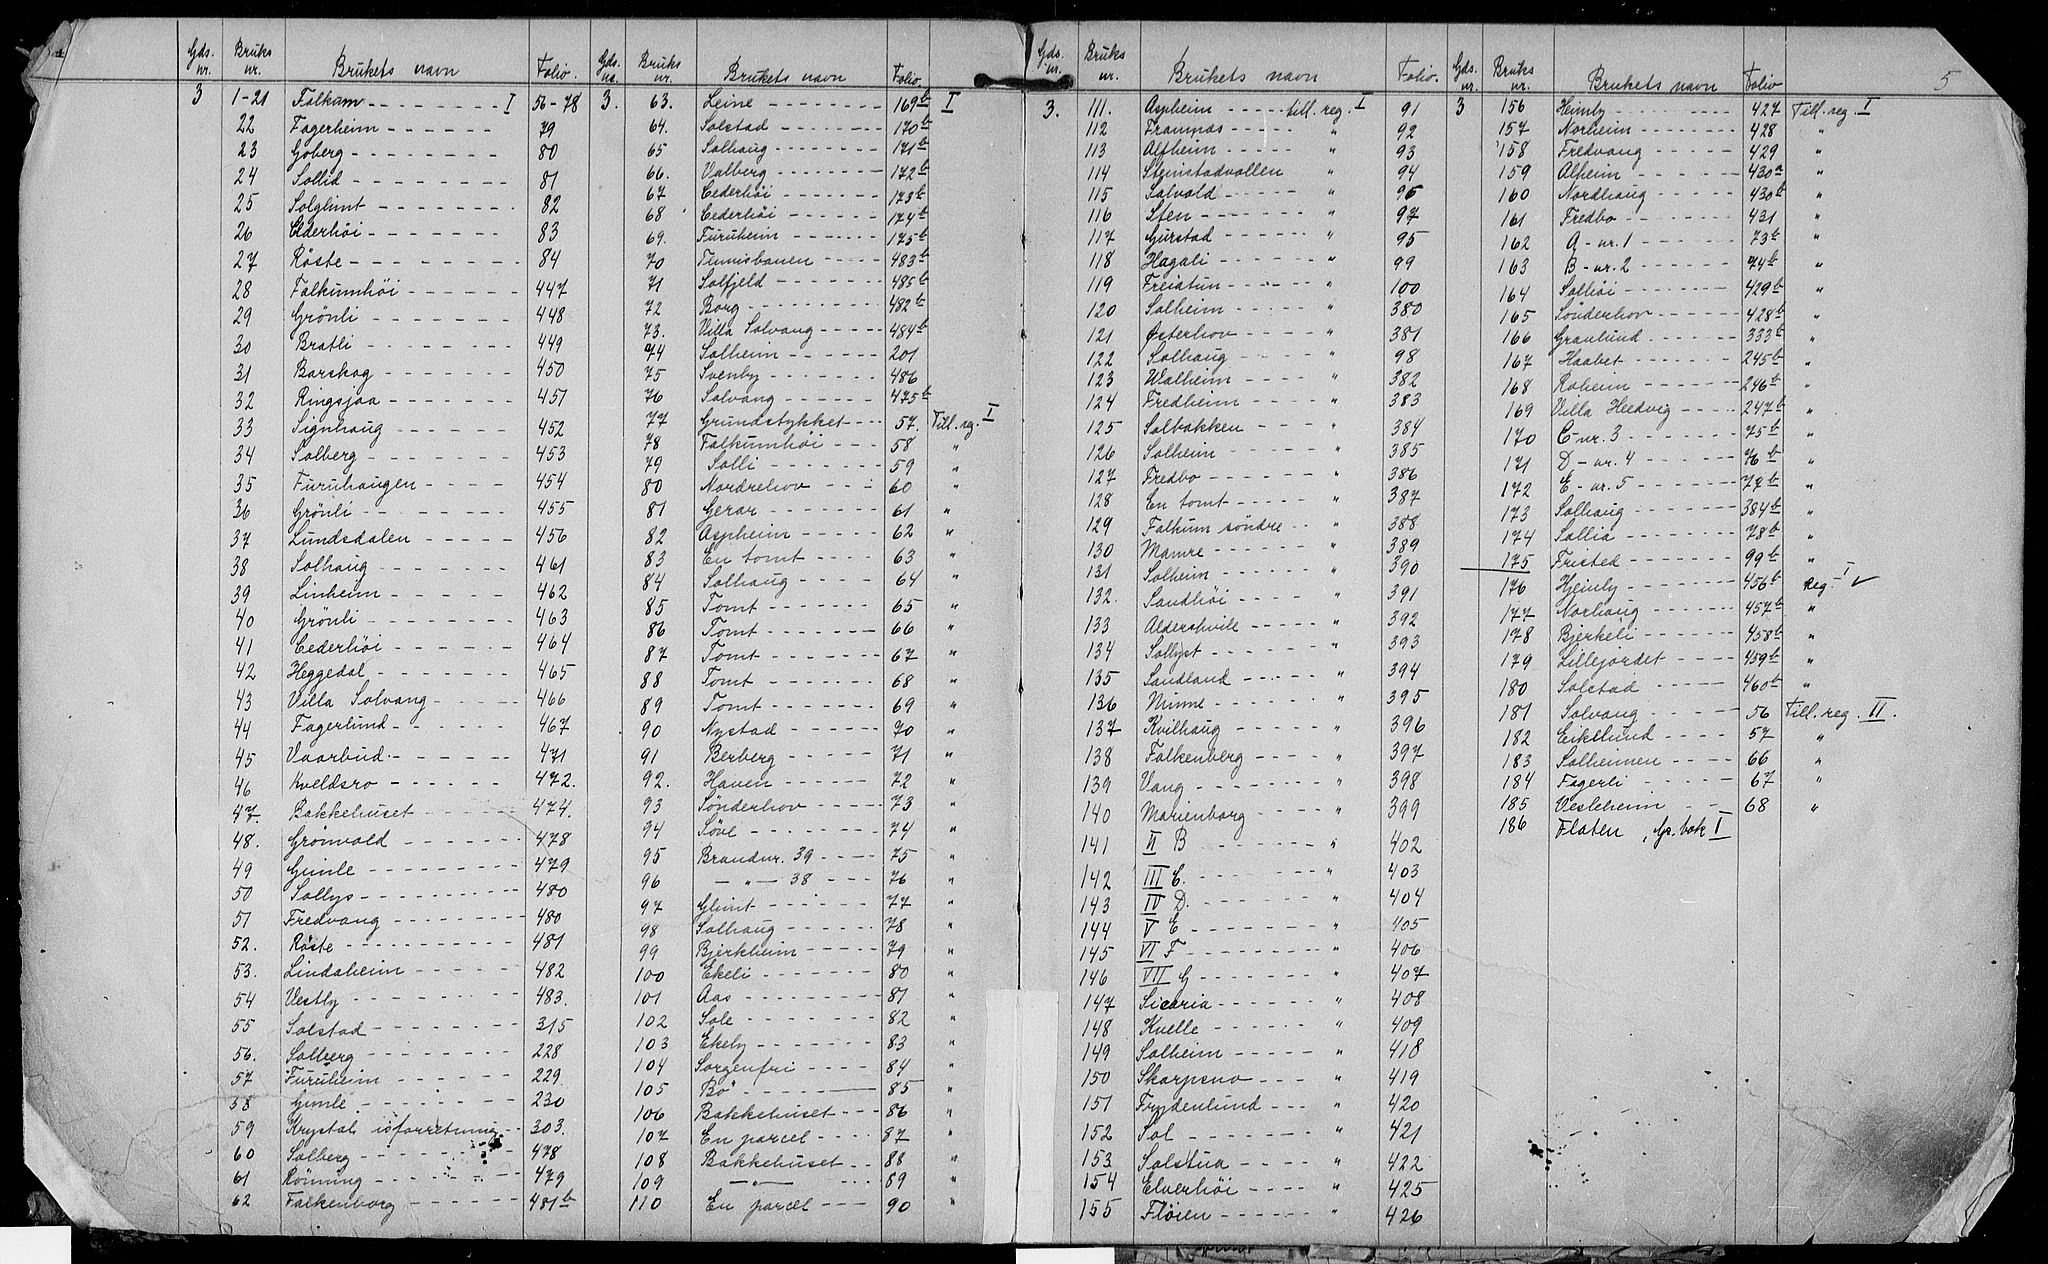 5
Gds. nr. Bruks nr. Brukets navn Folio.
3 1-21 Falkum I 56-78
22 Fagerheim 79
23 Goberg 80
24 Sollid 81
25 Solglimt 82
26 Cederhöi 83
27 Röste 84
28 Falkumhöi 447
29 Grönli 448
30 Bratli 449
31 Barskog 450
32 Ringsjaa 451
33 Signhaug 452
34 Solberg 453
35 Furuhaugen 454
36 Grönli 455
37 Lundsdalen 456
38 Solhaug 461
39 Linheim 462
40 Grönli 463
41 Cederhöi 464
42 Heggedal 465
43 Villa Solvang 466
44 Fagerlund 467
45 Vaarbud 471
46 Kveldsro 472.
47 Bakkehuset 474.
48. Grönvold 478
49 Gimle 479
50 Sollys 480
51 Fredvang 480
52. Röste 481
53. Lindaheim 482
54 Vestly 483.
55 Solstad 315
56. Solberg 228
57 Furuheim 229.
58 Gimle 230
59 Krystal isforretning 303.
60 Solberg 478
61 Rönning 479
62 Falkenborg 481b
Gds. nr. Bruks nr. Brukets navn Folio.
3. 63. Leine 169b I
64. Solstad 170b
65 Solhaug 171b
66. Valberg 172b
67 Cederhöi 173b
68 Cederhöi 174b
69. Furuheim 175b
70 Tennisbanen 483b
71 Solfjeld 485b
72 Borg 482b
73. Villa Solvang 484b
74 Solheim 201
75 Svenby 486
76 Solvang 475b
77 Grundstykket 57. Till. reg. I
78 Falkumhöi 58 "
79 Solli 59 "
80 Nordrehov 60 "
81 Gerar 61 "
82 Aspheim 62 "
83 En tomt 63 "
84 Solhaug 64 "
85 Tomt 65 "
86 Tomt 66 "
87 Tomt 67 "
88 Tomt 68 "
89 Tomt 69 "
90 Nystad 70 "
91 Berberg 71 "
92. Haven 72 "
93 Sönderhov 73 "
94 Söve 74 "
95 Brandnr. 39 75 "
96 — " — 38 76 "
97 Glimt 77 "
98 Solhaug 78 "
99 Bjerkheim 79 "
100 Ekeli 80 "
101 Aas 81 "
102 Sole 82 "
103 Ekely 83 "
104 Sorgenfri 84 "
105 Bö 85 "
106 Bakkehuset 86 "
107 En parcel 87 "
108 Bakkehuset 88 "
109 — " — 89 "
110 En parcel 90 "
Gds. nr. Bruks nr. Brukets navn Folio.
3. 111. Aspheim till. reg. I 91
112 Framnæs " 92
113 Alfheim " 93
114 Steinstadvollen " 94
115 Solvold " 96
116 Sten " 97
117 Gurstad " 95
118 Hagali " 99
119 Freiatun " 100
120 Solheim " 380
121 Østerhov " 381
122 Solhaug " 98
123 Walheim " 382
124 Fredheim " 383
125 Solbakken " 384
126 Solheim " 385
127 Fredbo " 386
128 En tomt " 387
129 Falkum söndre " 388
130 Mamre " 389
131 Solheim " 390
132. Sandhöi " 391
133 Aldershvile " 392
134 Sollyst " 393
135 Sandland " 394
136 Minne " 395
137 Kvilhaug " 396
138 Falkenberg " 397
139 Vang " 398
140 Marienborg " 399
141 II B " 402
142 III C. " 403
143 IV D. " 404
144 V E " 405
145 VI F " 406
146 VII G " 407
147 Sicaria " 408
148 Kvelle " 409
149 Solheim " 418
150 Skarpsno " 419
151 Frydenlund " 420
152 Sol " 421
153 Solstua " 422
154 Elverhöi " 425
155 Flöien " 426
Gds. nr. Bruks nr. Brukets navn Folio
3 156 Heimly 427 Till. reg. I
157 Norheim 428 "
158 Fredvang 429 "
159 Alheim 430a "
160 Nordhaug 430b "
161 Fredbo 431 "
162 A-nr. 1 73b "
163 B-nr. 2 74b "
164 Solhöi 429b "
165 Sönderhov 428b "
166 Granlund 333b "
167 Haabet 245b "
168 Roheim 246b "
169 Villa Hedvig 247b "
170 C-nr. 3 75b "
171 D-nr. 4 76b "
172 E-nr. 5 77b "
173 Solhaug 384b "
174 Sollia 78b "
175 Fristed 99b "
176 Hjemly 456b Reg. I ✓
177 Norhaug 457b "
178 Bjerkeli 458b "
179 Lillejordet 459b "
180 Solstad 460b "
181 Solvang 56 Till. reg. II.
182 Eiklund 57 "
183 Solheimen 66 "
184 Fagerli 67 "
185 Vesleheim 68 "
186 Flaten, Gr. bok I